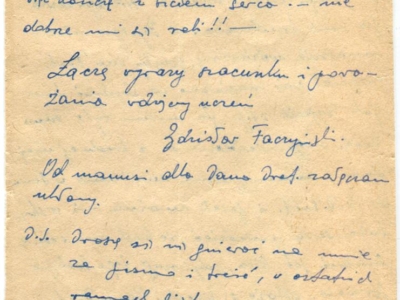 się kończę z biciem serca. — nie
dobrze mi się robi!! —
Łączę wyrazy szacunku i powa-
żania wdzięczny uczeń
Zdzisław
Od mamusi dla Pana Prof. załączam
ukłony.
P.S. Proszę się nie gniewać na mnie
za pismo i treść, w ostatnich